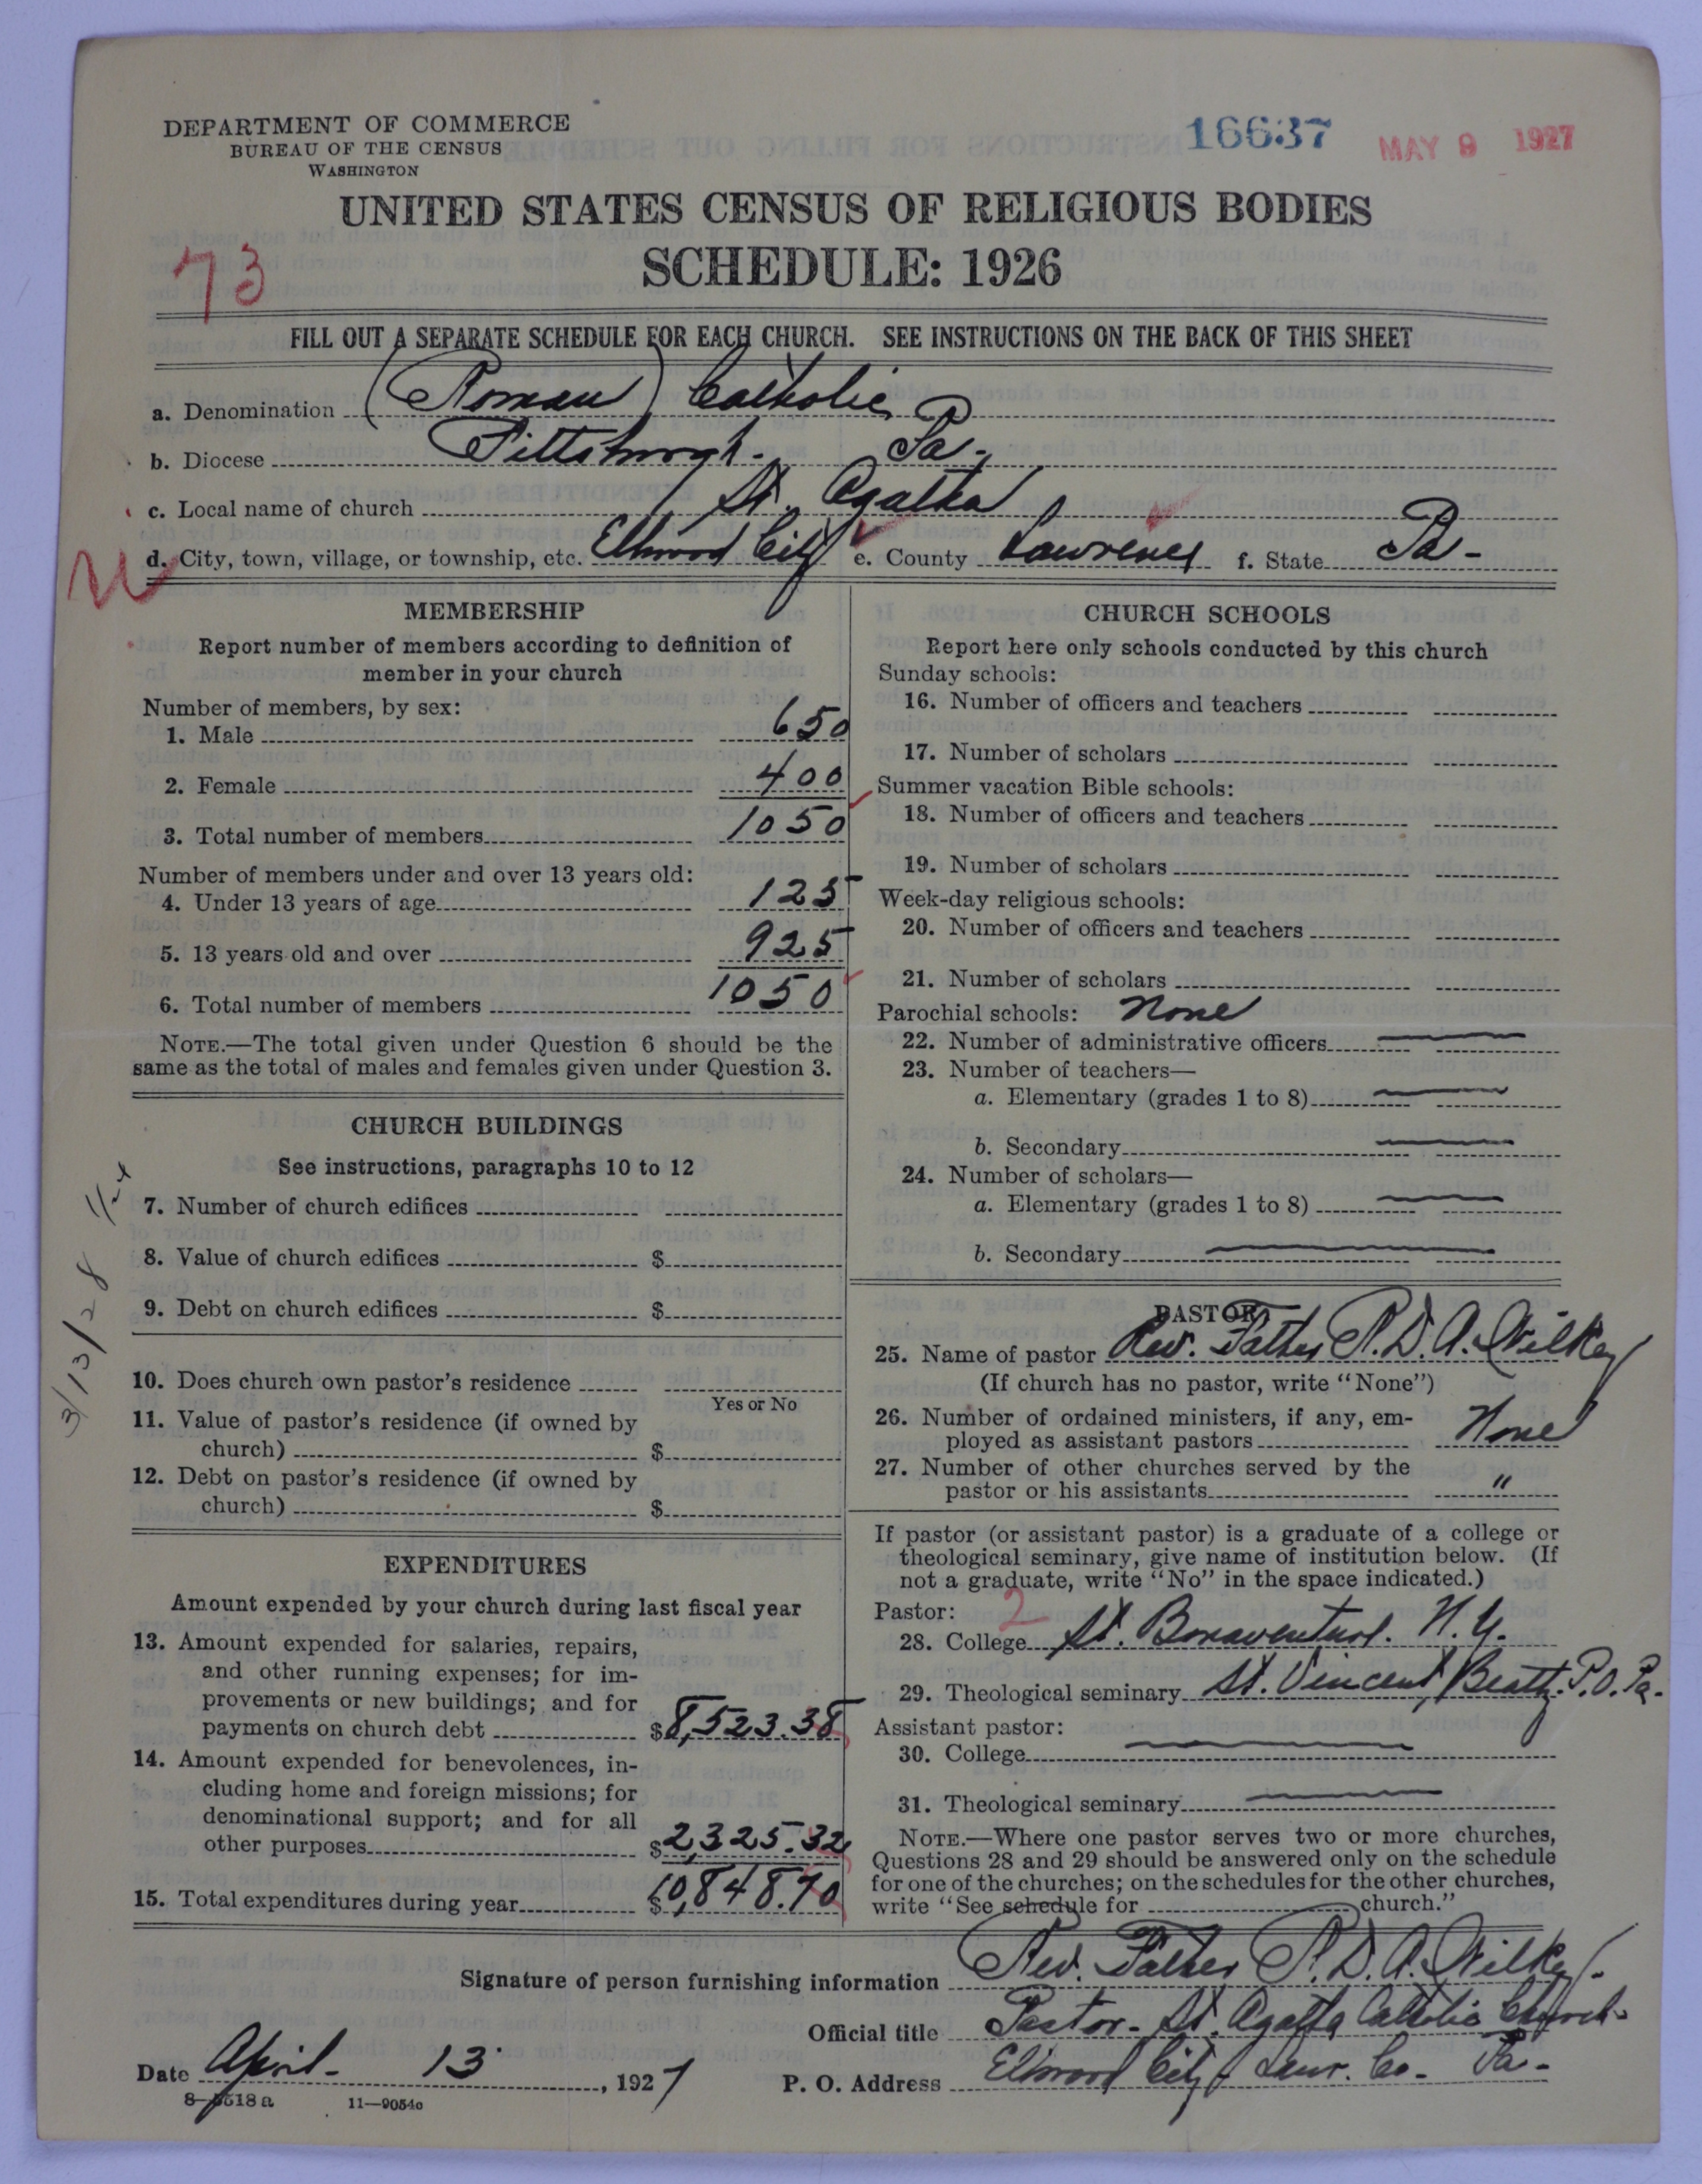 DEPARTMENT OF COMMERCE
BUREAU OF THE CENSUS
WASHINGTON
16637
MAY 9 1927
UNITED STATES CENSUS OF RELIGIOUS BODIES
SCHEDULE: 1926
73
FILL OUT A SEPARATE SCHEDULE FOR EACH CHURCH. SEE INSTRUCTIONS ON THE BACK OF THIS SHEET
a. Denomination (Roman) Catholic
b. Diocese Pittsburgh. Pa.
c. Local name of church St. Agatha
d. City, town, village, or township, etc. Ellwood City e. County Lawrence f. State Pa-
MEMBERSHIP
Report number of members according to definition of
member in your church
Number of members, by sex:
1. Male 650
2. Female 400
3. Total number of members 1050
Number of members under and over 13 years old:
4. Under 13 years of age 125
5. 13 years old and over 925
6. Total number of members 1050
NOTE.—The total given under Question 6 should be the
same as the total of males and females given under Question 3.
CHURCH BUILDINGS
See instructions, paragraphs 10 to 12
7. Number of church edifices
8. Value of church edifices $
9. Debt on church edifices $
10. Does church own pastor's residence
Yes or No
11. Value of pastor's residence (if owned by
church) $
12. Debt on pastor's residence (if owned by
church) $
3/13/28
EXPENDITURES
Amount expended by your church during last fiscal year
13. Amount expended for salaries, repairs,
and other running expenses; for im-
provements or new buildings; and for
payments on church debt $8,523.38
14. Amount expended for benevolences, in-
cluding home and foreign missions; for
denominational support; and for all
other purposes $2,325.32
15. Total expenditures during year $10,848.70
CHURCH SCHOOLS
Report here only schools conducted by this church
Sunday schools:
16. Number of officers and teachers
17. Number of scholars
Summer vacation Bible schools:
18. Number of officers and teachers
19. Number of scholars
Week-day religious schools:
20. Number of officers and teachers
21. Number of scholars
Parochial schools: None
22. Number of administrative officers
23. Number of teachers—
a. Elementary (grades 1 to 8)
b. Secondary
24. Number of scholars—
a. Elementary (grades 1 to 8)
b. Secondary
PASTOR
25. Name of pastor Rev. Father P. D. A. Wilkey
(If church has no pastor, write "None")
26. Number of ordained ministers, if any, em-
ployed as assistant pastors None
27. Number of other churches served by the
pastor or his assistants "
If pastor (or assistant pastor) is a graduate of a college or
theological seminary, give name of institution below. (If
not a graduate, write "No" in the space indicated.)
Pastor: 2
28. College St. Bonaventure. N.Y.
29. Theological seminary St. Vincent, Beatty P.O. Pa.
Assistant pastor:
30. College
31. Theological seminary
NOTE.—Where one pastor serves two or more churches,
Questions 28 and 29 should be answered only on the schedule
for one of the churches; on the schedules for the other churches,
write "See schedule for church."
Signature of person furnishing information Rev. Father P. D. A. Wilkey.
Official title Pastor- St. Agatha Catholic Church
Date April- 13, 1927
P. O. Address Ellwood City Lawr. Co- Pa-
8-5518a 11—9054c